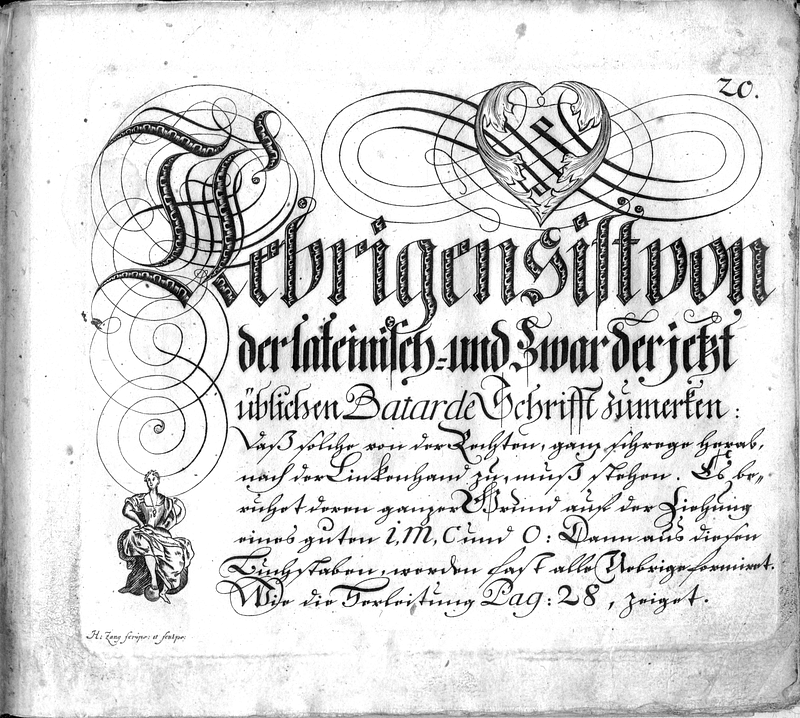 20.
Uebrigens ist von
der lateinisch=und Zwar der jetzt
üblichen Batarde Schrifft zumerken:
daß solche von der Rechten, ganz schrege herab,
nach der Linkenhand zu, muß stehen. Es be„
ruhet deren ganzer Grund auf der Ziehung
eines guten i, m, c und o: Dann aus diesen
Buchstaben, werden fast alle Uebrige formiret.
Wie die Vorleitung Pag: 28, zeiget.
H: Zang scrips: et sculps: